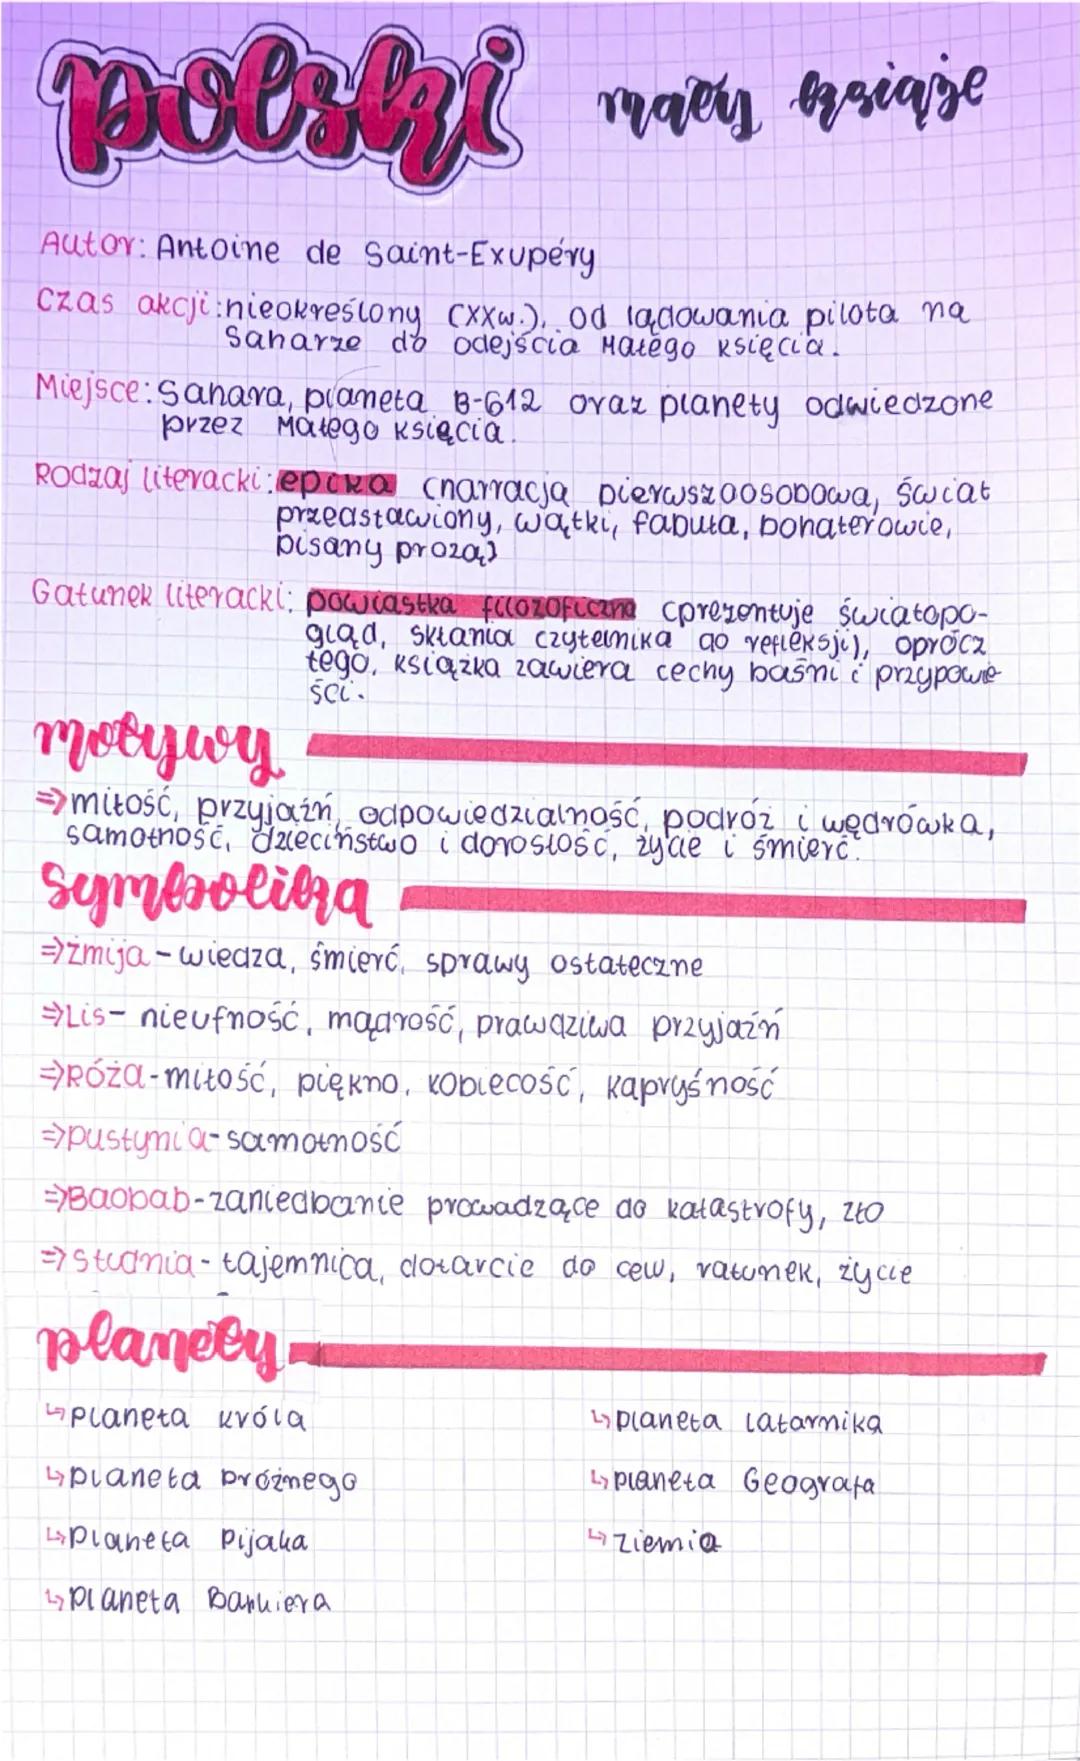 polski mały książe
Autor: Antoine de Saint-Exupéry
Czas akcji: nieokreślony (XXw.), od lądowania pilota na
Saharze do odejścia Małego Księcia.
Miejsce: Sahara, planeta B-612 oraz planety odwiedzone
przez Małego Księcia.
Rodzaj literacki: epika (narracja pierwszoosobowa, świat
przedstawiony, wątki, fabuła, bohaterowie,
pisany prozą)
Gatunek literacki: powiastka filozoficzna (prezentuje światopo-
gląd, skłania czytelnika do refleksji), oprócz
tego, książka zawiera cechy baśni i przypowie
ści.
motywy
⇒ miłość, przyjaźń, odpowiedzialność, podróż i wędrówka,
samotność, dzieciństwo i dorosłość, życie i śmierć.
Symbolika
⇒ żmija - wiedza, śmierć, sprawy ostateczne
⇒ Lis - nieufność, mądrość, prawdziwa przyjaźń
⇒ Róża - miłość, piękno, kobiecość, kapryśność
⇒ pustynia - samotność
⇒ Baobab - zaniedbanie prowadzące do katastrofy, zło
⇒ studnia - tajemnica, dotarcie do celu, ratunek, życie
planety
↳ planeta króla
↳ planeta próżnego
↳ planeta Pijaka
↳ planeta Bankiera
↳ planeta latarnika
↳ planeta Geografa
↳ Ziemia